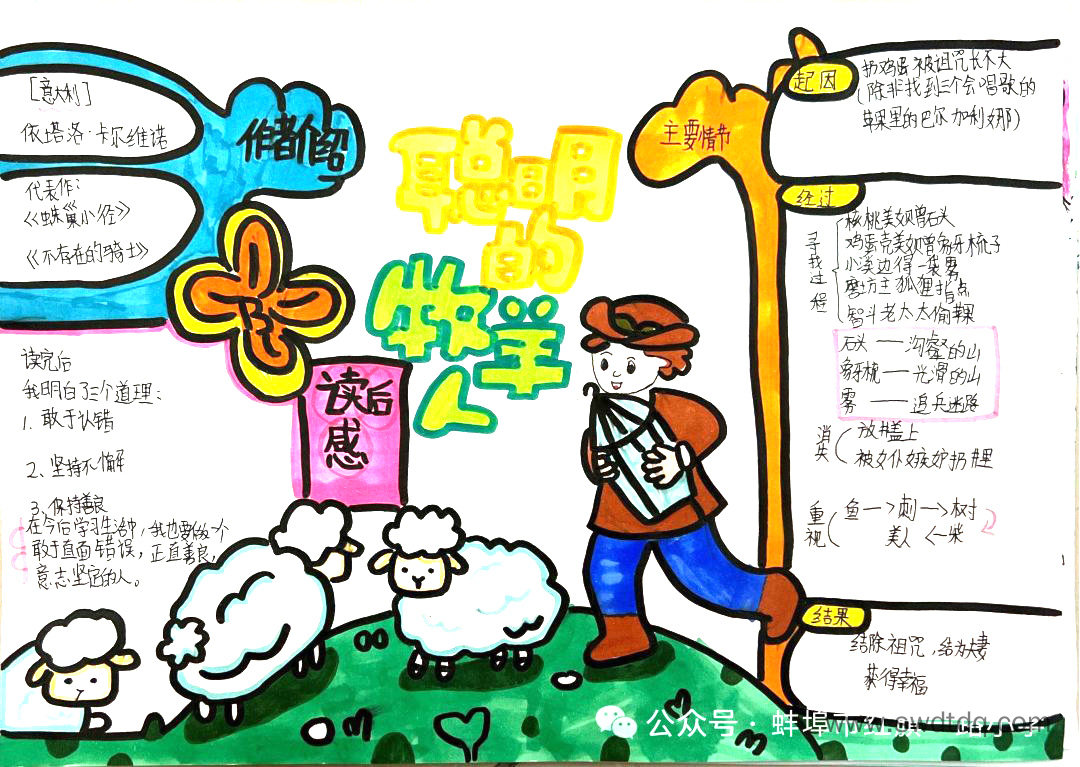 聪明
的
牧羊
人
作者介绍
[意大利]
依塔洛·卡尔维诺
代表作：
《蛛巢小径》
《不存在的骑士》
读后
感
读完后
我明白了三个道理：
1. 敢于认错
2、坚持不懈
3、保持善良
在今后学习生活中，我也要做一个
敢于直面错误，正直善良，
意志坚定的人。
主要情节
起因
扔鸡蛋被诅咒长不大
（除非找到三个会唱歌的
苹果里的巴尔加利娜）
经过
寻找过程
核桃美奴赠石头
鸡蛋壳美奴赠象牙梳子
小溪边得一袋雾
磨坊主狐狸指点
智斗老太太偷苹果
石头 —— 沟壑的山
象牙梳 —— 光滑的山
雾 —— 追兵迷路
消失
放井盖上
被女仆嫉妒扔井里
重视
鱼 —> 刺 —> 树
美人 <— 米
结果
结除祖咒，结为夫妻
获得幸福
公众号·蚌埠市红旗一路小学